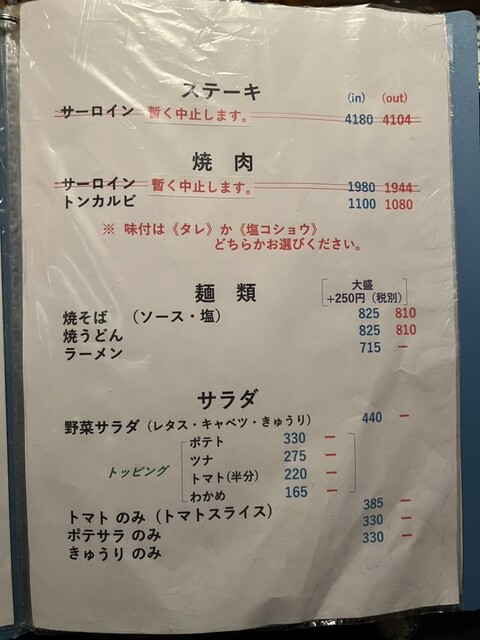 ステーキ
(in) (out)
サーロイン 暫く中止します。 4180 4104
焼 肉
サーロイン 暫く中止します。 1980 1944
トンカルビ 1100 1080
※ 味付は《タレ》か《塩コショウ》
どちらかお選びください。
麺 類
大盛
+250円(税別)
焼そば (ソース・塩) 825 810
焼うどん 825 810
ラーメン 715 ー
サラダ
野菜サラダ(レタス・キャベツ・きゅうり) 440 ー
ポテト 330 ー
ツナ 275 ー
トッピング
トマト(半分) 220 ー
わかめ 165 ー
トマト のみ (トマトスライス) 385 ー
ポテサラ のみ 330 ー
きゅうり のみ 330 ー